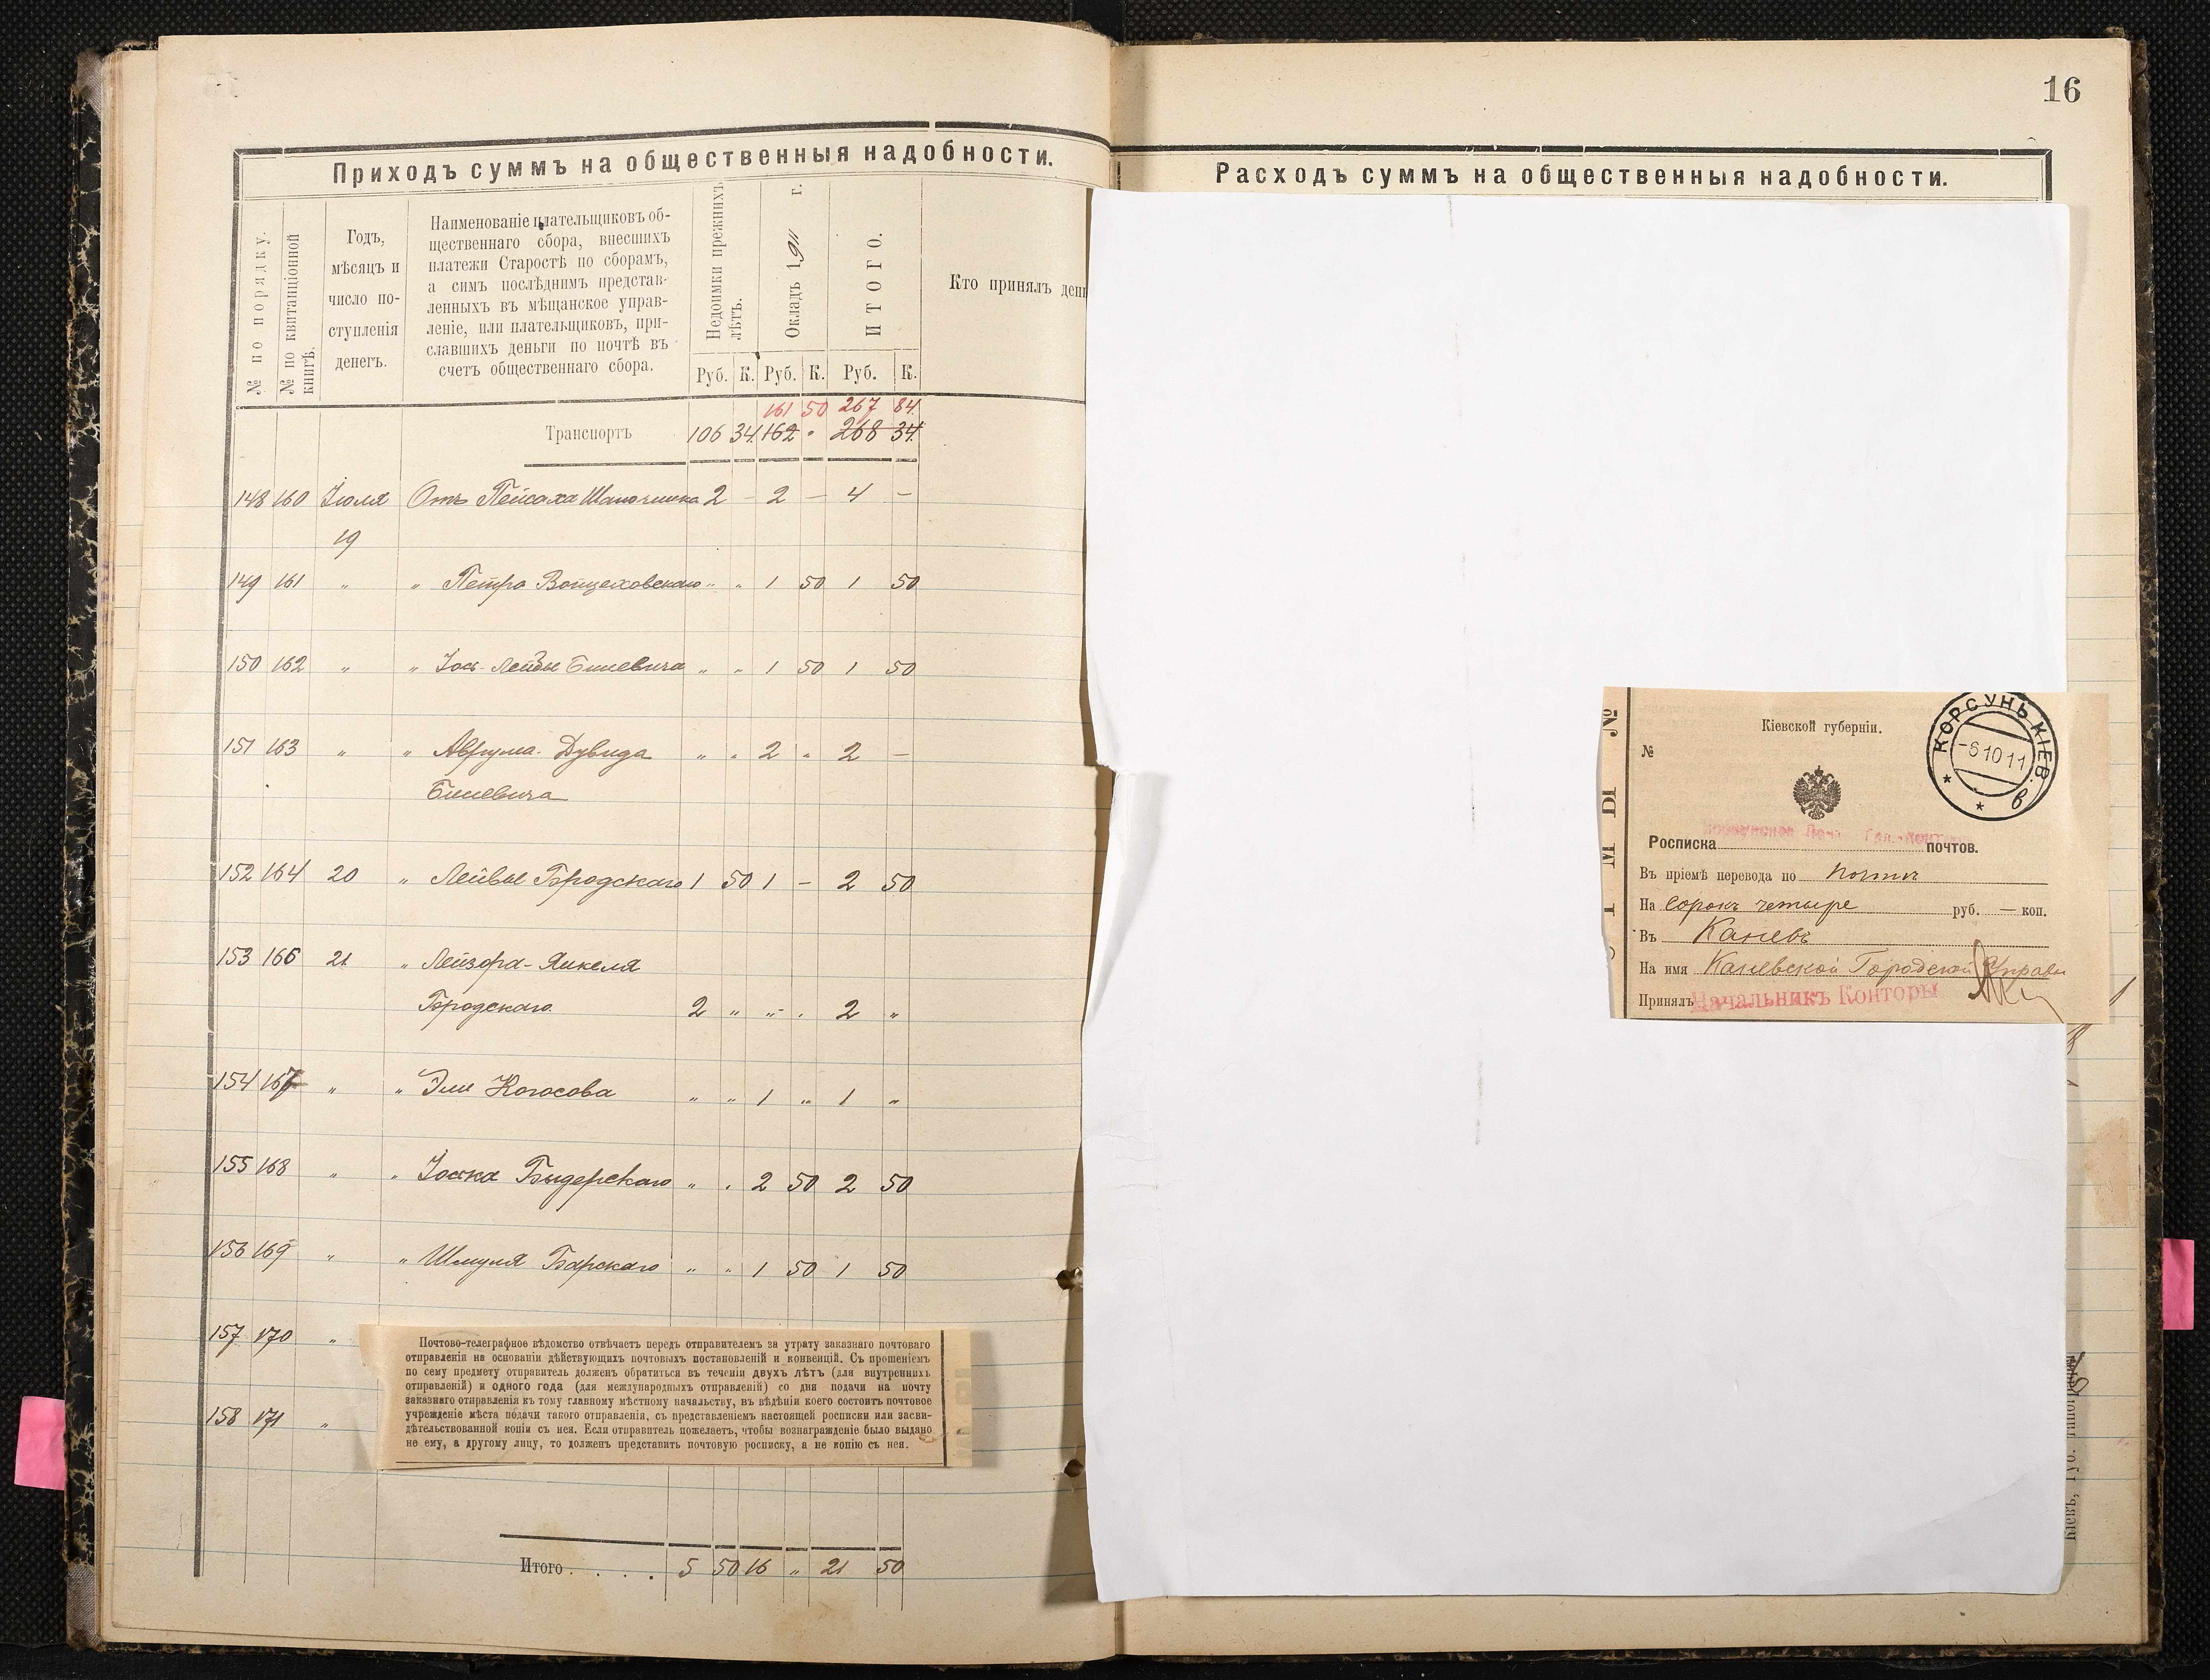 16
Приходъ суммъ на общественныя надобности.
Расходъ суммъ на общественныя надобности.
№ по порядку.
№ по квитанціонной книгѣ.
Годъ,
мѣсяцъ и
число по-
ступленія
денегъ.
Наименованіе плательщиковъ об-
щественнаго сбора, внесшихъ
платежи Старостѣ по сборамъ,
а симъ послѣднимъ представ-
ленныхъ въ мѣщанское управ-
леніе, или плательщиковъ, при-
славшихъ деньги по почтѣ въ
счетъ общественнаго сбора.
Недоимки прежнихъ лѣтъ.
Окладъ 1911 г.
ИТОГО.
Кто принялъ ден
Руб. К. Руб. К. Руб. К.
161 50 267 84.
Транспортъ 106 34 162 " 268 34
148 160 Іюля Отъ Пейсаха Шапочника 2 – 2 – 4 –
19
149 161 " " Петра Войцеховскаго " " 1 50 1 50
150 162 " " Іос-Лейбы Билевича " " 1 50 1 50
151 163 " " Аврума-Дувида " " 2 " 2 –
Билевича
152 164 20 " Лейвы Бродскаго 1 50 1 – 2 50
153 166 21 " Лейзора-Янкеля
Бродскаго 2 " " " 2 "
154 167 " " Эли Когосова " " 1 " 1 "
155 168 " " Іоська Быдерскаго " " 2 50 2 50
156 169 " " Шмуля Барскаго " " 1 50 1 50
157 170 "
158 171 "
Почтово-телеграфное вѣдомство отвѣчаетъ передъ отправителемъ за утрату заказнаго почтоваго
отправленія на основаніи дѣйствующихъ почтовыхъ постановленій и конвенцій. Съ прошеніемъ
по сему предмету отправитель долженъ обратиться въ теченіи двухъ лѣтъ (для внутреннихъ
отправленій) и одного года (для международныхъ отправленій) со дня подачи на почту
заказнаго отправленія къ тому главному мѣстному начальству, въ вѣдѣніи коего состоитъ почтовое
учрежденіе мѣста подачи такого отправленія, съ представленіемъ настоящей росписки или засви-
дѣтельствованной копіи съ нея. Если отправитель пожелаетъ, чтобы вознагражденіе было выдано
не ему, а другому лицу, то долженъ представить почтовую росписку, а не копію съ нея.
Итого . . . . 5 50 16 " 21 50
Кіевской губерніи.
№
КОРСУНЬ КІЕВ. в
-6 10 11
Росписка почтов.
Въ пріемѣ перевода по почтѣ
На сорокъ четыре руб. — коп.
Въ Каневъ
На имя Каневской Городской Управы
Принялъ Начальникъ Конторы
Кіевъ, Губ. Типографія